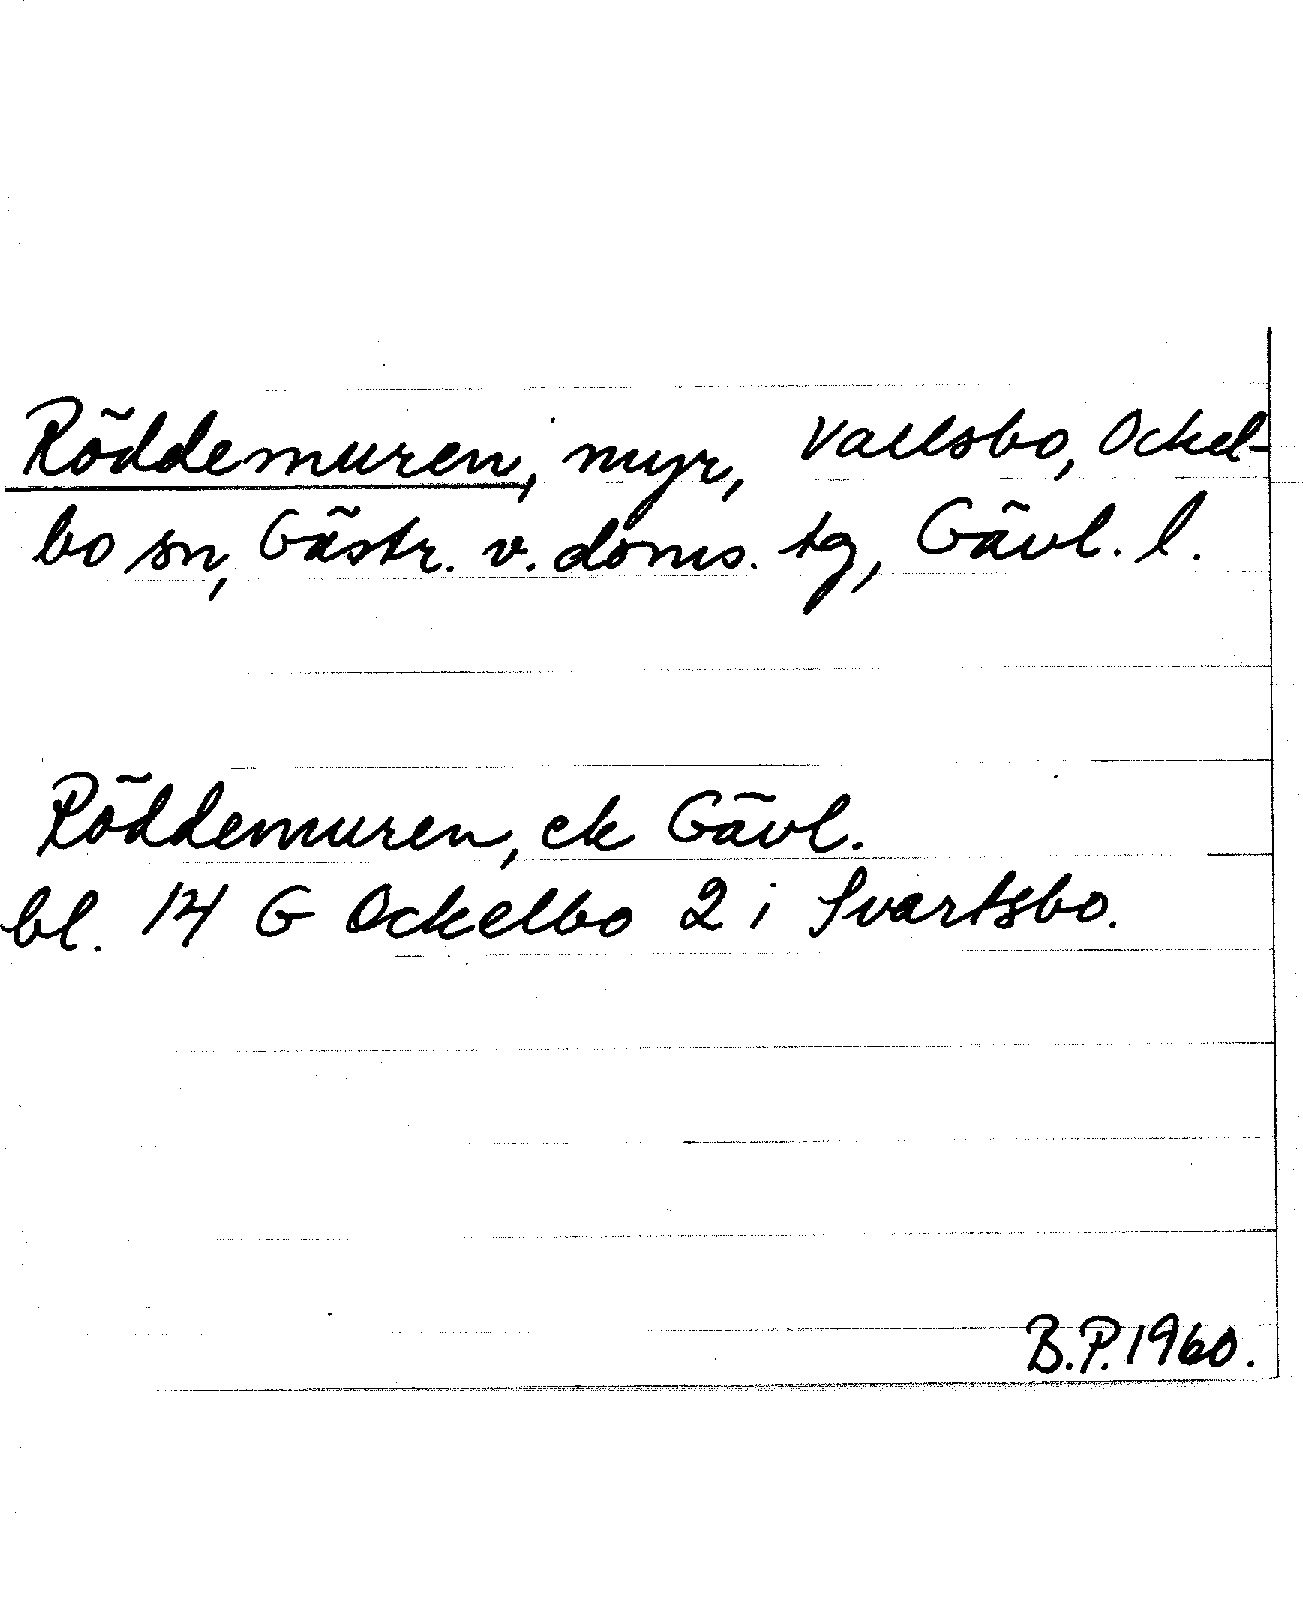 Röddemuren, myr, Vallsbo, Ockel-
bo sn, Gästr. v. doms. tg, Gävl. l.
Röddemuren, ek Gävl.
bl. 14 G Ockelbo 2 i Svartsbo.
B.P. 1960.